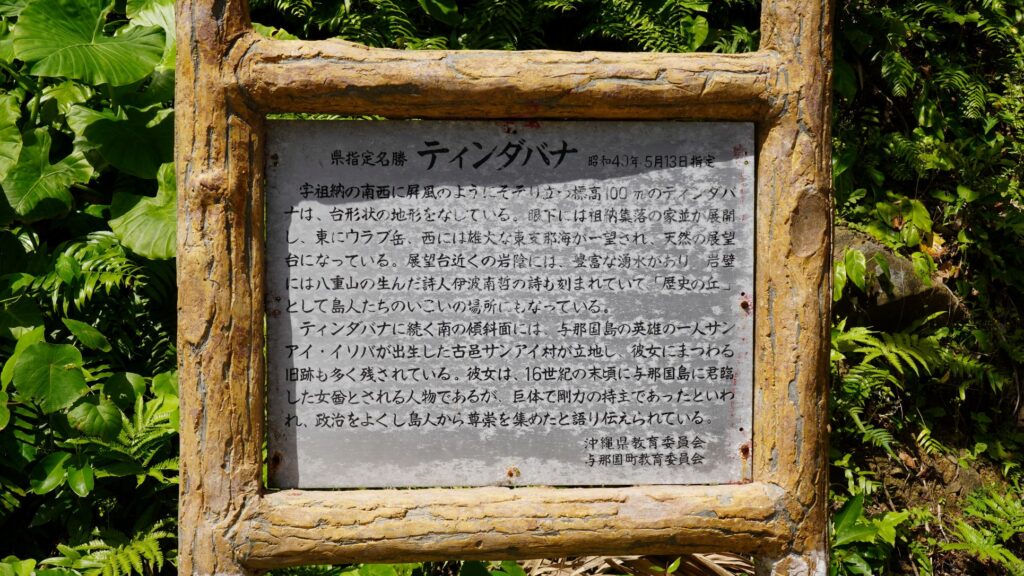 県指定名勝 ティンダバナ 昭和49年5月13日指定
字祖納の南西に屏風のようにそそり立つ標高100mのティンダバ
ナは、台形状の地形をなしている。眼下には祖納集落の家並が展開
し、東にウラブ岳、西には雄大な東支那海が一望され、天然の展望
台になっている。展望台近くの岩陰には、豊富な湧水があり 岩壁
には八重山の生んだ詩人伊波南哲の詩も刻まれていて「歴史の丘」
として島人たちのいこいの場所にもなっている。
ティンダバナに続く南の傾斜面には、与那国島の英雄の一人サン
アイ・イソバが出生した古邑サンアイ村が立地し、彼女にまつわる
旧跡も多く残されている。彼女は、16世紀の末頃に与那国島に君臨
した女酋とされる人物であるが、巨体で剛力の持主であったといわ
れ、政治をよくし島人から尊崇を集めたと語り伝えられている。
沖縄県教育委員会
与那国町教育委員会